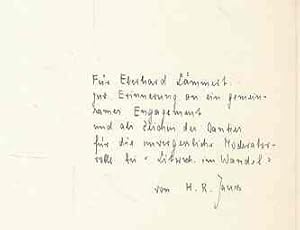 Für Eberhard Lämmert
zur Erinnerung an ein gemein-
sames Engagement
und als Zeichen des Dankes
für die unvergessliche Moderator-
rolle bei "Litwiss. im Wandel"
von H. R. Jauss